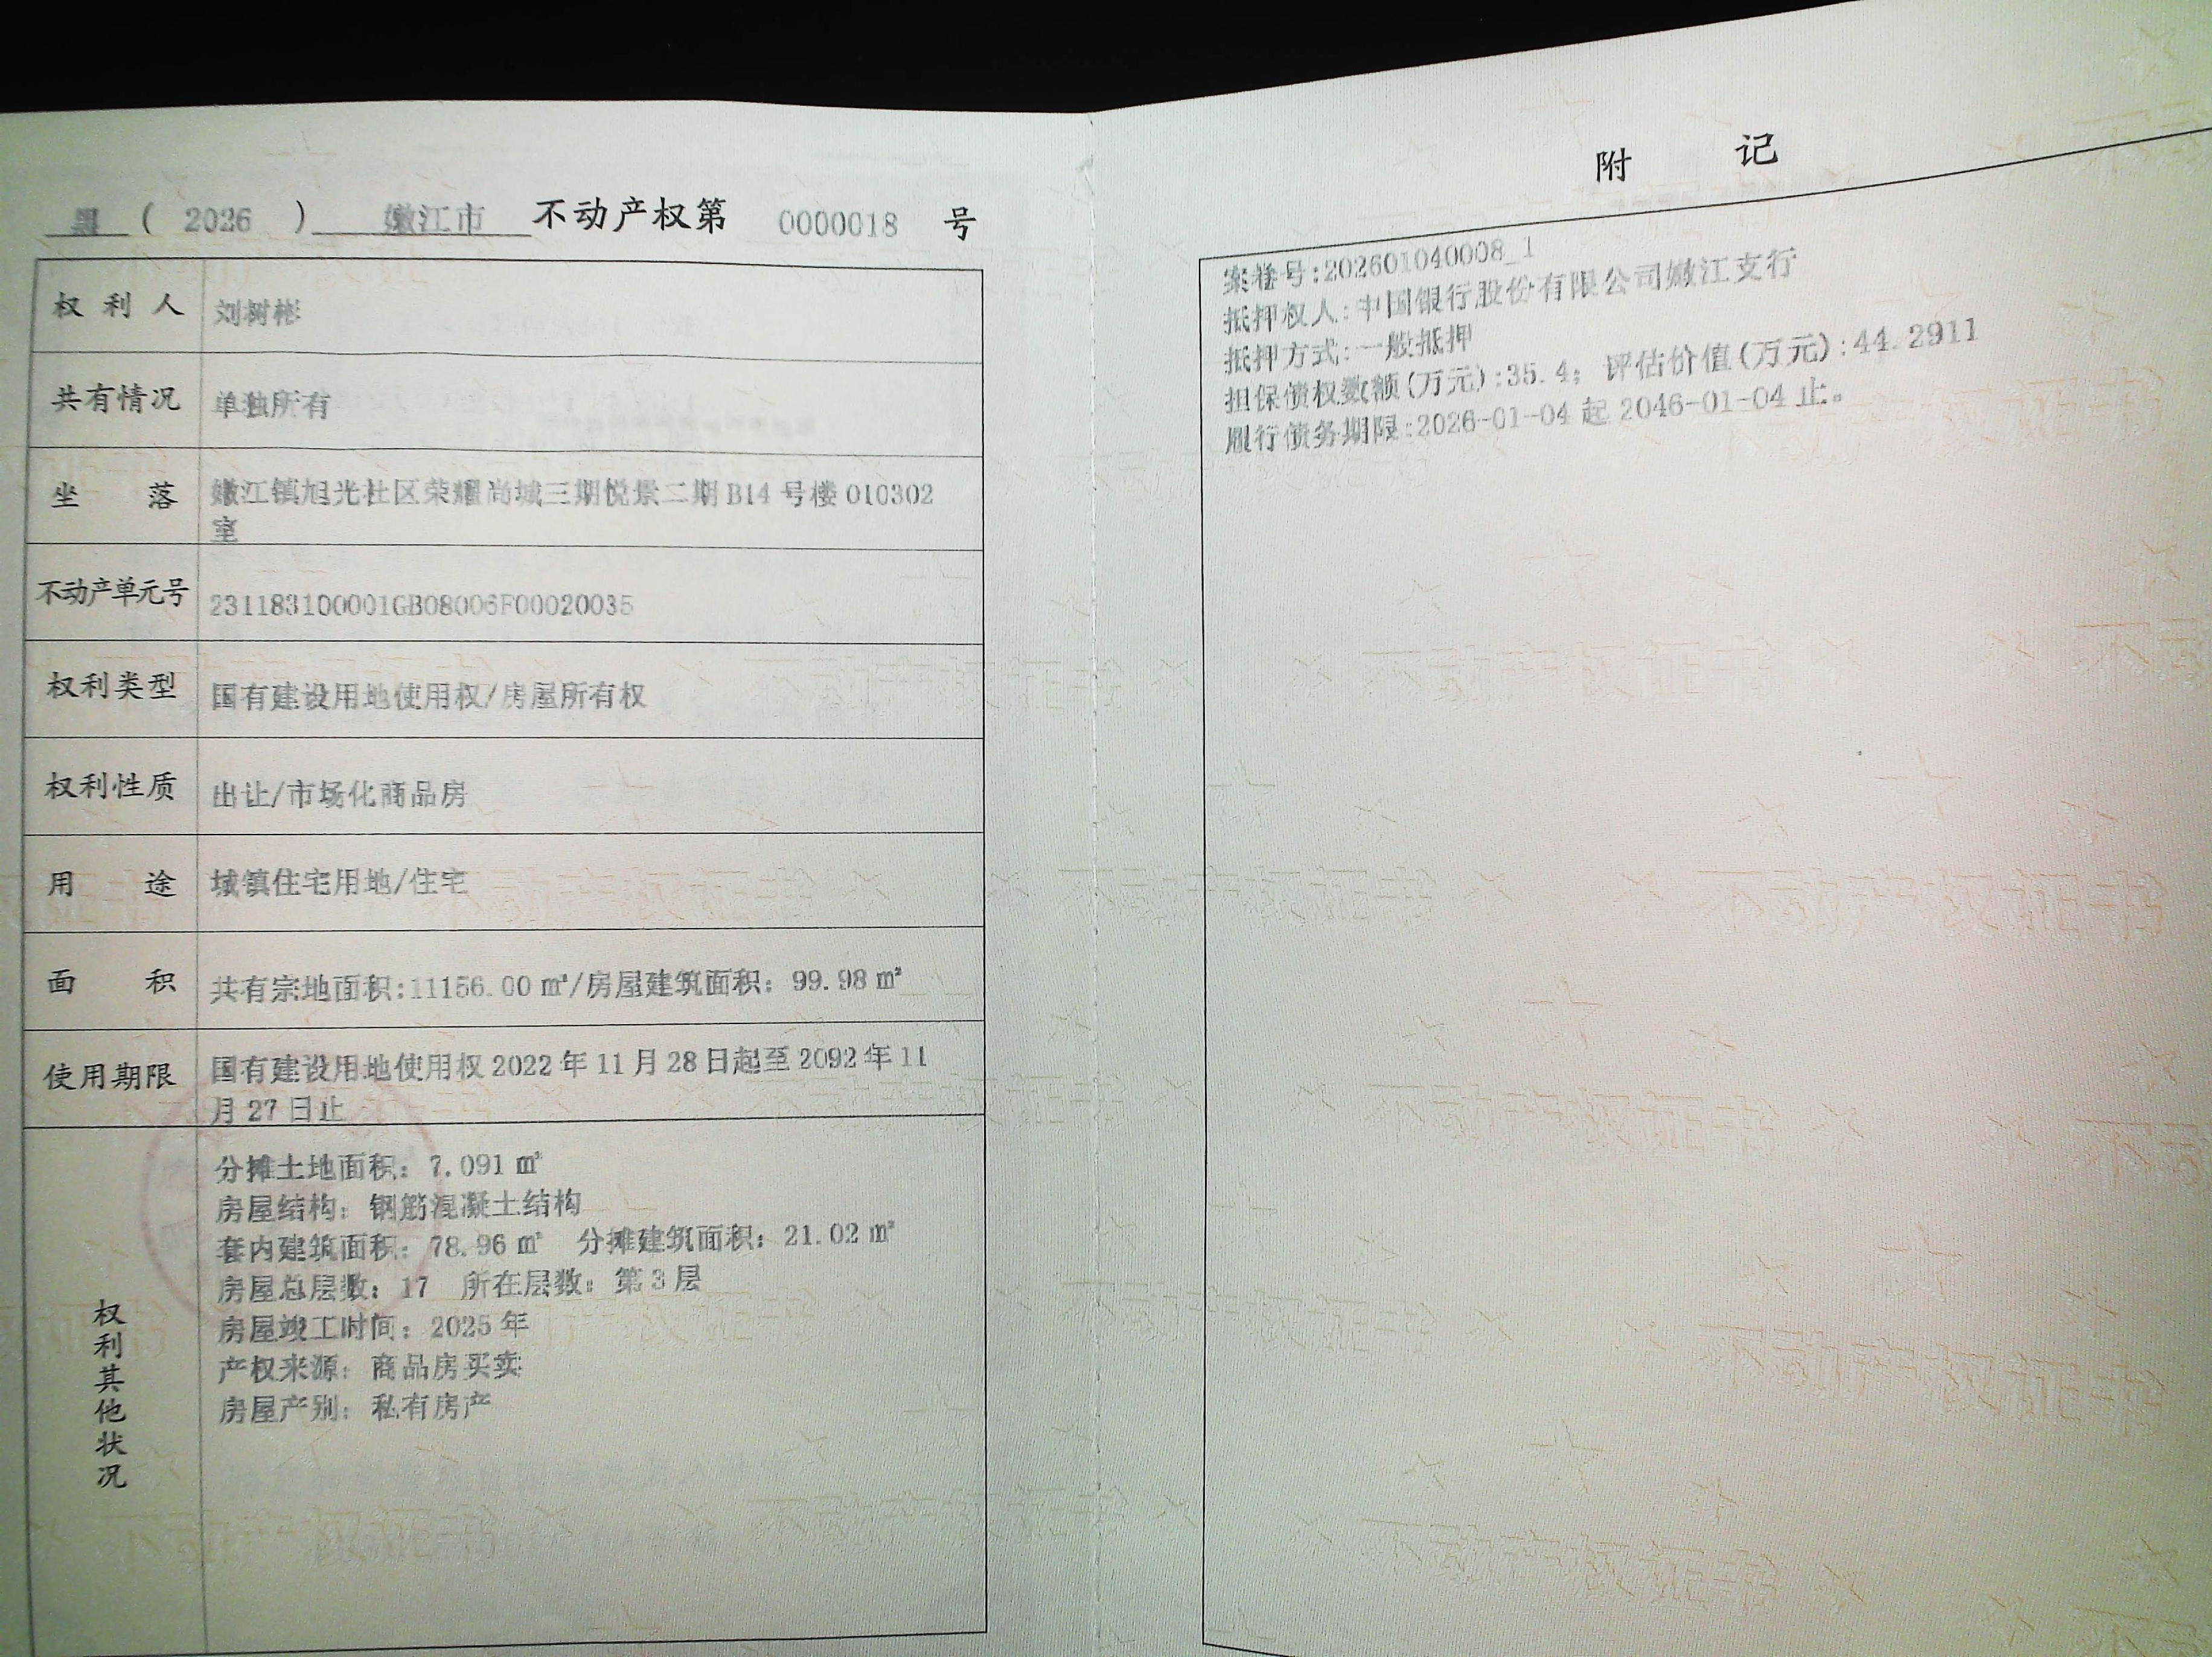 黑 ( 2026 ) 嫩江市 不动产权第 0000018 号
权利人 刘树彬
共有情况 单独所有
坐落 嫩江镇旭光社区荣耀尚城三期悦景二期 B14 号楼 010302
室
不动产单元号 231183100001GB08006F00020035
权利类型 国有建设用地使用权/房屋所有权
权利性质 出让/市场化商品房
用途 城镇住宅用地/住宅
面积 共有宗地面积:11156.00 ㎡/房屋建筑面积: 99.98 ㎡
使用期限 国有建设用地使用权 2022 年 11 月 28 日起至 2092 年 11
月 27 日止
权利其他状况
分摊土地面积: 7.091 ㎡
房屋结构: 钢筋混凝土结构
套内建筑面积: 78.96 ㎡ 分摊建筑面积: 21.02 ㎡
房屋总层数: 17 所在层数: 第 3 层
房屋竣工时间: 2025 年
产权来源: 商品房买卖
房屋产别: 私有房产
附记
案卷号:202601040008_1
抵押权人:中国银行股份有限公司嫩江支行
抵押方式:一般抵押
担保债权数额(万元):35.4; 评估价值(万元):44.2911
履行债务期限:2026-01-04 起 2046-01-04 止。